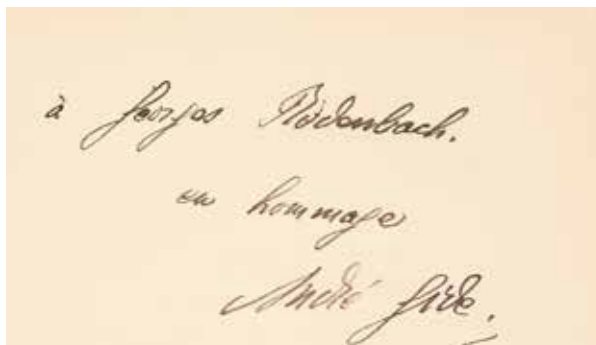 à Georges Rodenbach.
en hommage
André Gide.